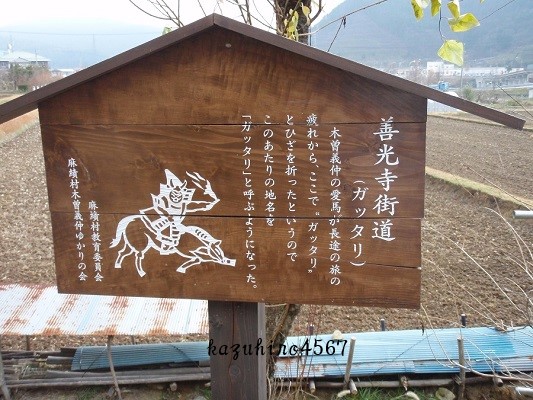 善光寺街道
(ガッタリ)
木曽義仲の愛馬が長途の旅の
疲れから、ここで"ガッタリ"
とひざを折ったというので
このあたりの地名を
「ガッタリ」と呼ぶようになった。
麻績村教育委員会
麻績村木曽義仲ゆかりの会
kazuhino4567